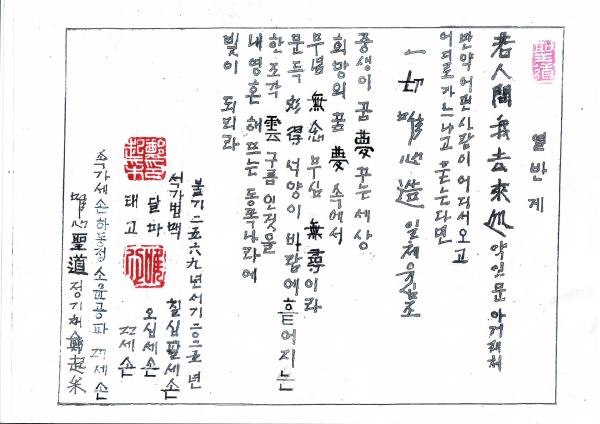 聖道
열반게
若人問我去來処 약인문아거래처
만약 어떤 사람이 어디서 오고
어디로 가느냐고 묻는다면
一切唯心造 일체유심조
중생이 꿈 夢 꾸는 세상
희망의 꿈 夢 속에서
무념 無念 무심 無尋 이라
문득 석양이 바람에 흩어지는
한 조각 雲 구름 인것을
내 영혼 해 뜨는 동쪽 나라에
빛이 되리라
불기 二五六九년 서기 二0二五년
석가법맥 칠십팔세손
달파 오십세손
태고 고고세손
속가세손 하동정 소윤공파 세손
唯心聖道 정기채 鄭起采